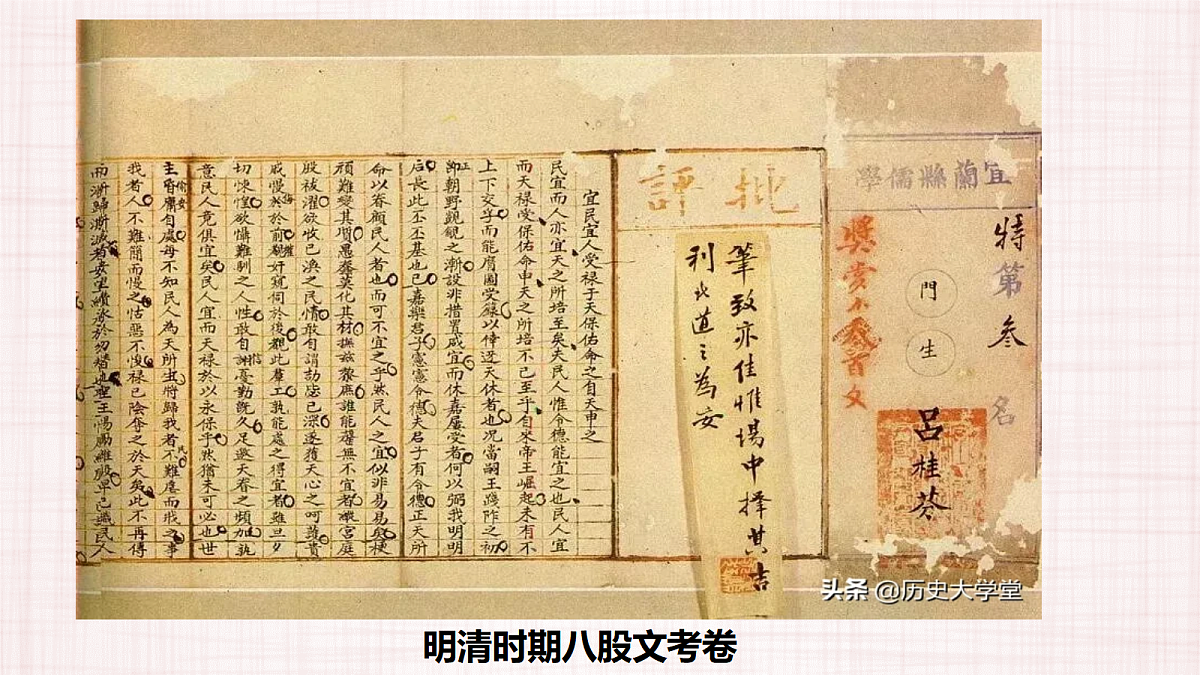 宜蘭縣儒學
特第叁名
門生
呂桂芬
批評
筆致亦佳惟場中擇其吉
利北道之為安
宜民宜人受禄于天保佑命之自天申之
民宜而人亦宜天之所培至矣夫民人惟令德能宜之也民人宜
而天禄受保佑命申天之所培不已至乎自來帝王崛起未有不
上下交孚而能膺圖受籙以倖邀天休者也况當嗣王踐阼之初
朝野觀之漸設非措置咸宜而休嘉屢受者何以弼我明明
后長此丕丕基也已嘉樂君子憲憲令德夫君子有令德正天所
命以眷顧民人者也而可不宜之乎然民人之宜似非易易矣梗
頑難變其愚蠢莫化其材撫兹黎庶誰能罄無不宜者宮庭
股祓濯欲收已渙之民情敢自謂劼毖已深遂獲天心之呵護責
戚慢於前奸窺伺於後覩此羣工孰能處之得宜者雖旦夕
切悚惶欲懾難馴之人性敢自謝憂勤既久足邀天眷之頻加孰
意民人竟俱宜矣民人宜而天禄於以永保乎然猶未可必也世
主昏庸自處每不知民人為天所生將歸我者不難虐而戕之事
我者人不難簡而慢之怙惡不悛禄已陰奪之於天矣此不再傳
而漸歸漸滅者妄望纘承於勿替也王惕厲維殷早已識民人
头条 @历史大学堂
明清时期八股文考卷